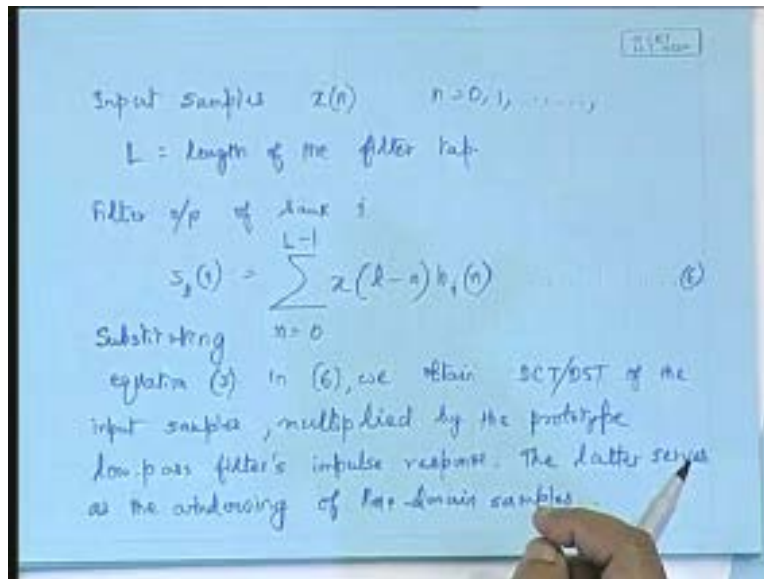 Input samples x(n) n = 0, 1, ......,
L = length of the filter tap.
Filter o/p of bank i
L-1
s_i(l) = ∑ x(l-n) h_i(n) (6)
n=0
Substituting
equation (5) in (6), we obtain DCT/DST of the
input samples, multiplied by the prototype
low-pass filter's impulse response. The latter serves
as the windowing of time-domain samples.